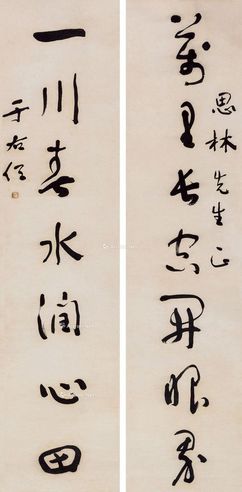 思林先生正
萬里長空開眼界
一川春水潤心田
于右任